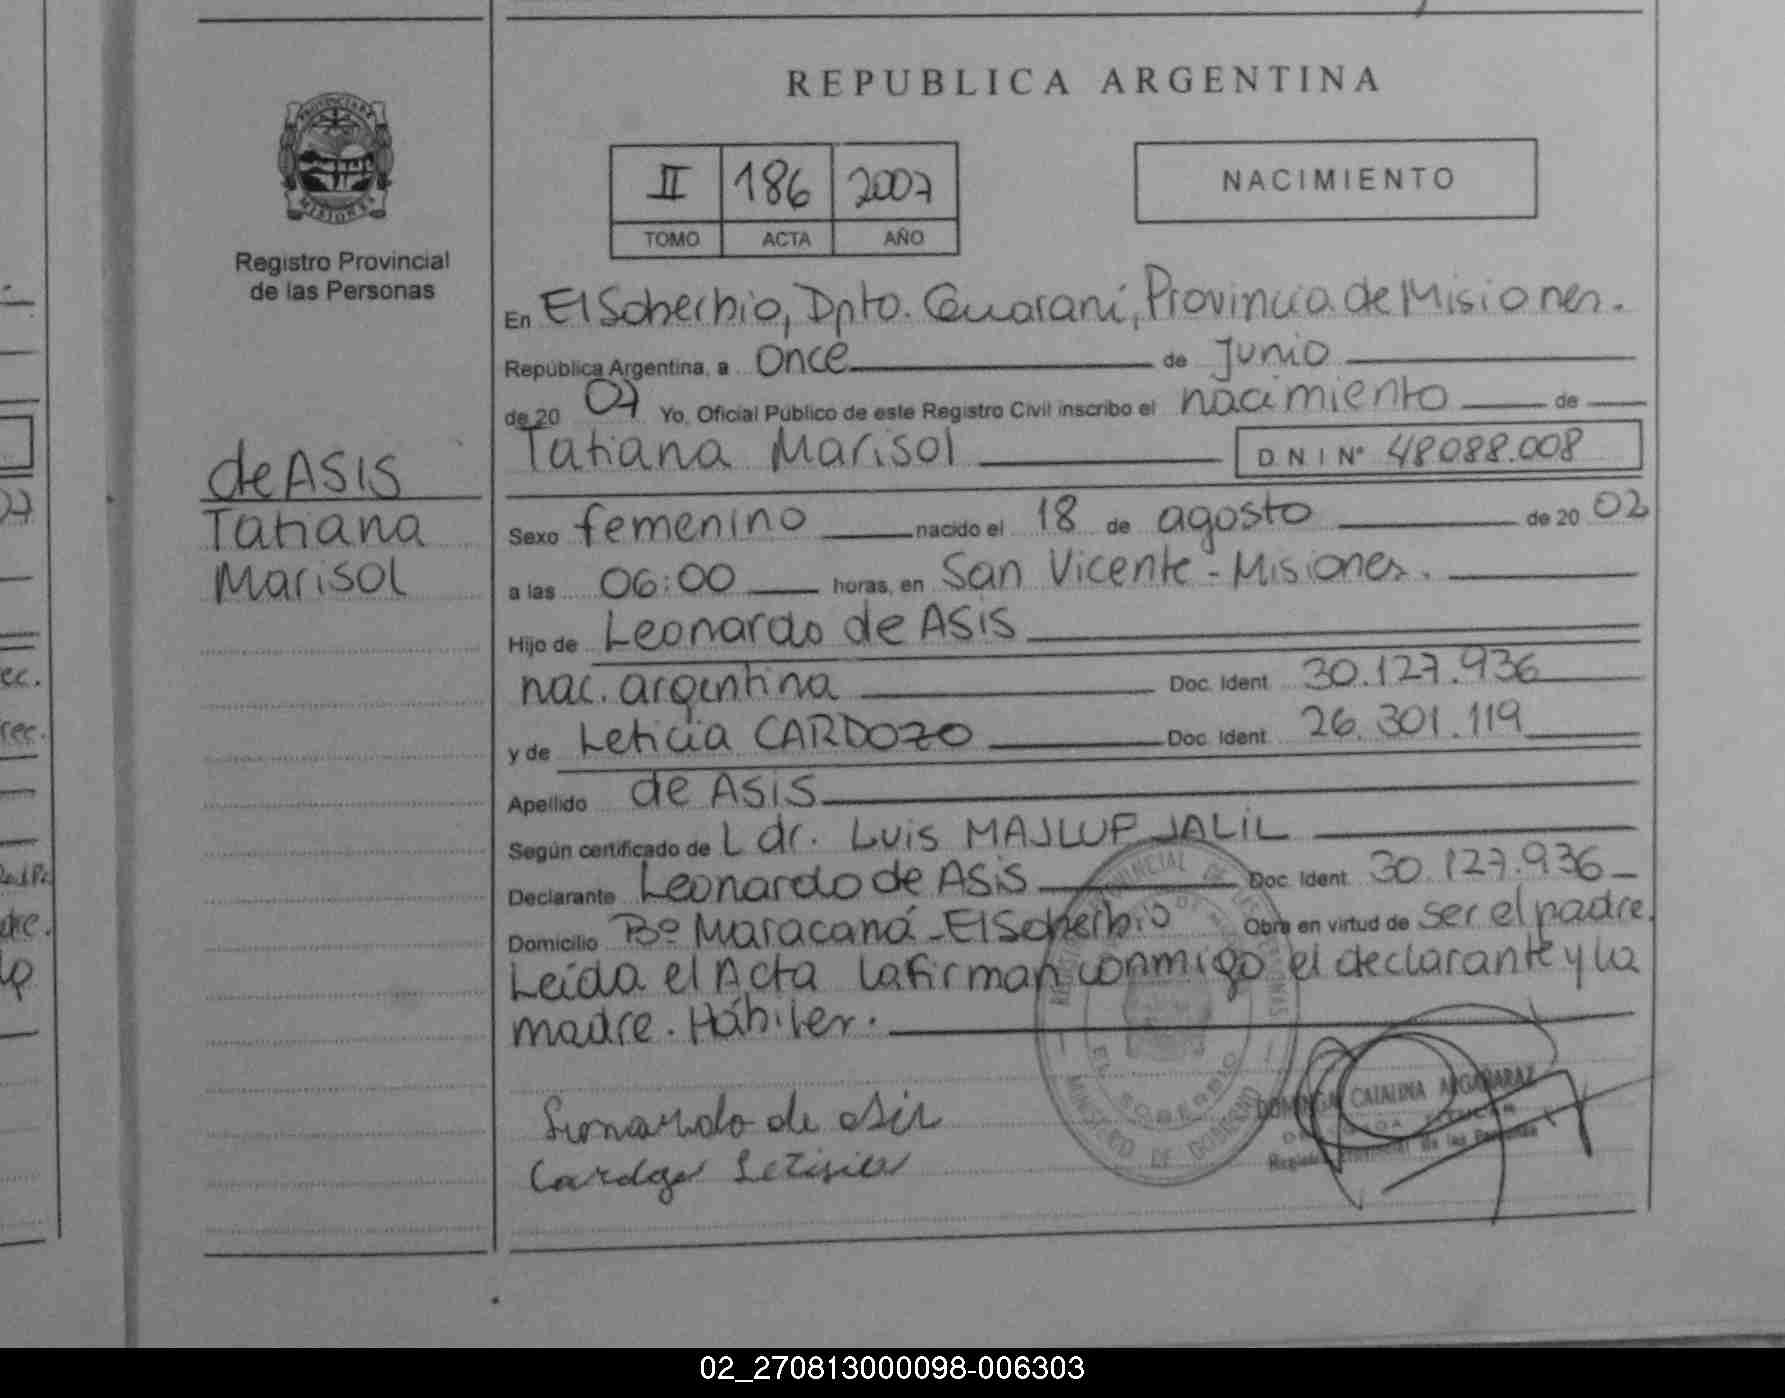 REPUBLICA ARGENTINA
PROVINCIA DE
MISIONES
Registro Provincial
de las Personas
II 186 2007
TOMO ACTA AÑO
NACIMIENTO
En El Soberbio, Dpto. Guaraní, Provincia de Misiones.
República Argentina, a once de Junio
de 20 07 Yo, Oficial Público de este Registro Civil inscribo el nacimiento de
Tatiana Marisol DNI Nº 48088.008
de ASIS
Tatiana
Marisol
Sexo femenino nacido el 18 de agosto de 20 02
a las 06:00 horas, en San Vicente - Misiones.
Hijo de Leonardo de ASIS
nac. argentina Doc. Ident. 30.127.936
y de Leticia CARDOZO Doc. Ident. 26.301.119
Apellido de ASIS
Según certificado de L dr. Luis MAJLUF JALIL
Declarante Leonardo de ASIS Doc. Ident. 30.127.936
Domicilio Bº Maracaná - El Soberbio Obra en virtud de ser el padre.
Leída el Acta la firman conmigo el declarante y la
madre. Hábiles.
MINISTERIO DE GOBIERNO
EL SOBERBIO
DOMINGA CATALINA ARGAÑARAZ
Registro Provincial de las Personas
02_270813000098-006303